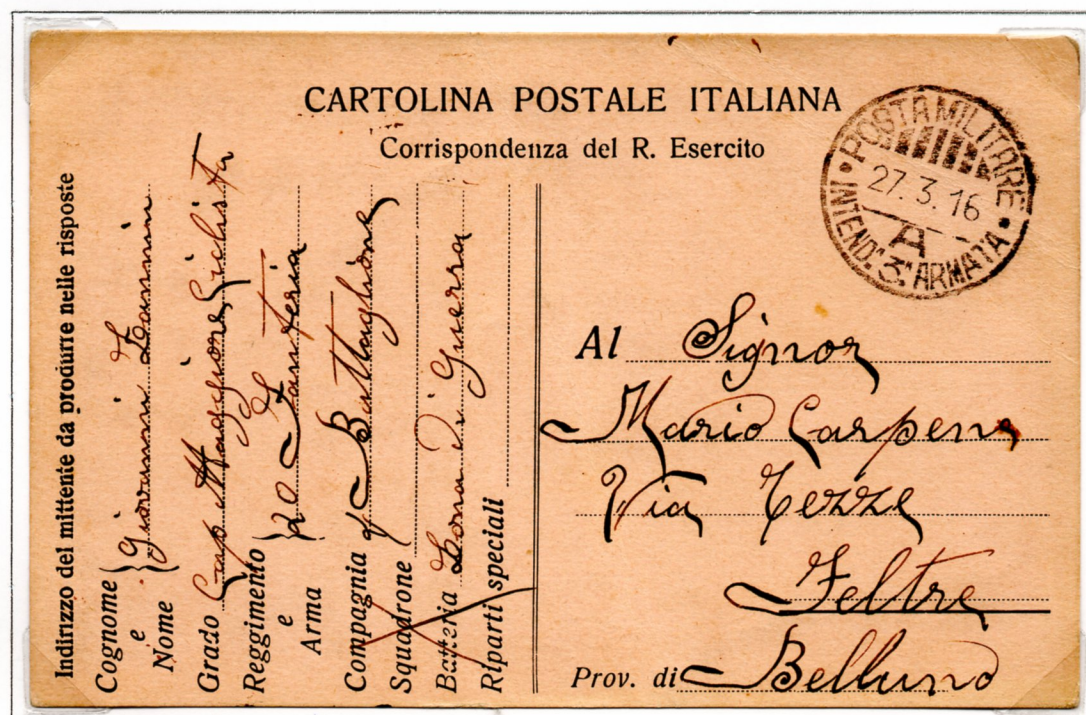 CARTOLINA POSTALE ITALIANA
Corrispondenza del R. Esercito
POSTA MILITARE
27. 3. 16
A
INTEND.ª 3ª ARMATA
Indirizzo del mittente da produrre nelle risposte
Cognome e Nome Giovanni Zannin
Grado Maggiore Ciclista
Reggimento e Arma 20 Fanteria
Compagnia Battaglione
Squadrone
Batteria Zona Di Guerra
Riparti speciali
Al Signor
Mario Carpene
Via Tezze
Feltre
Prov. di Belluno